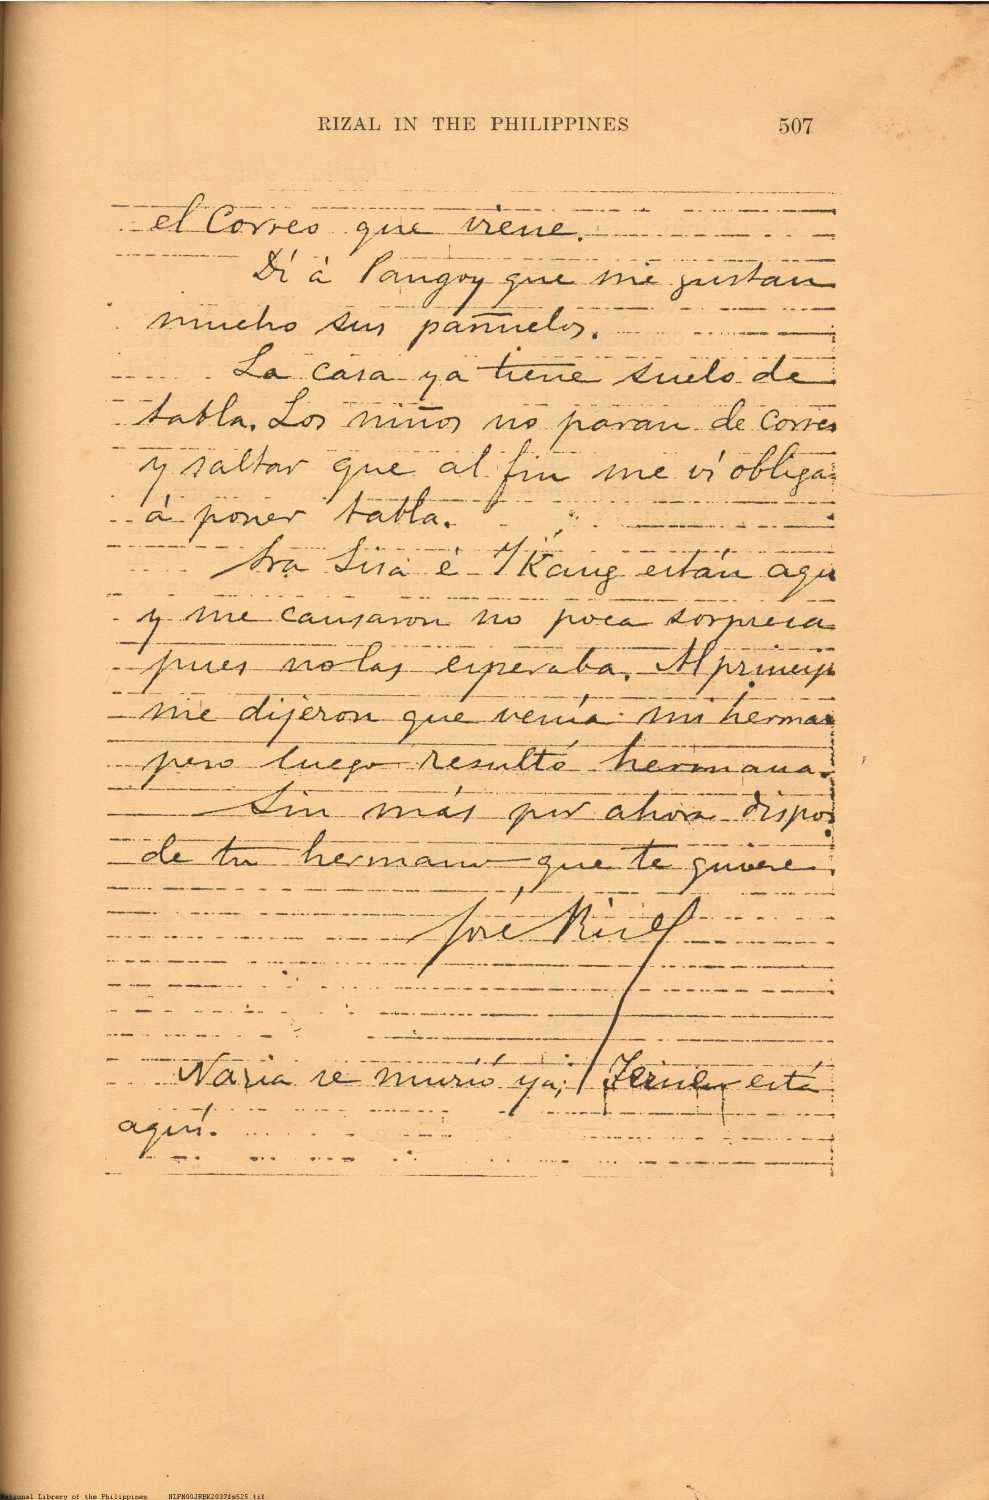 RIZAL IN THE PHILIPPINES 507
el Correo que viene.
Dí à Pangoy que me gustan
mucho sus pañuelos.
La casa ya tiene suelo de
tabla. Los niños no paran de correr
y saltar que al fin me ví obliga
à poner tabla.
Sra Sisa é Ykang están aqu
y me causaron no poca sorpresa
pues no las esperaba. Al princip
me dijeron que venía mi herma
pero luego resultó hermana.
Sin más por ahora dispon
de tu hermano que te quiere
José Rizal
Naria se murió ya; está
aquí.
National Library of the Philippines NLPM00JRBK2037fs525.tif